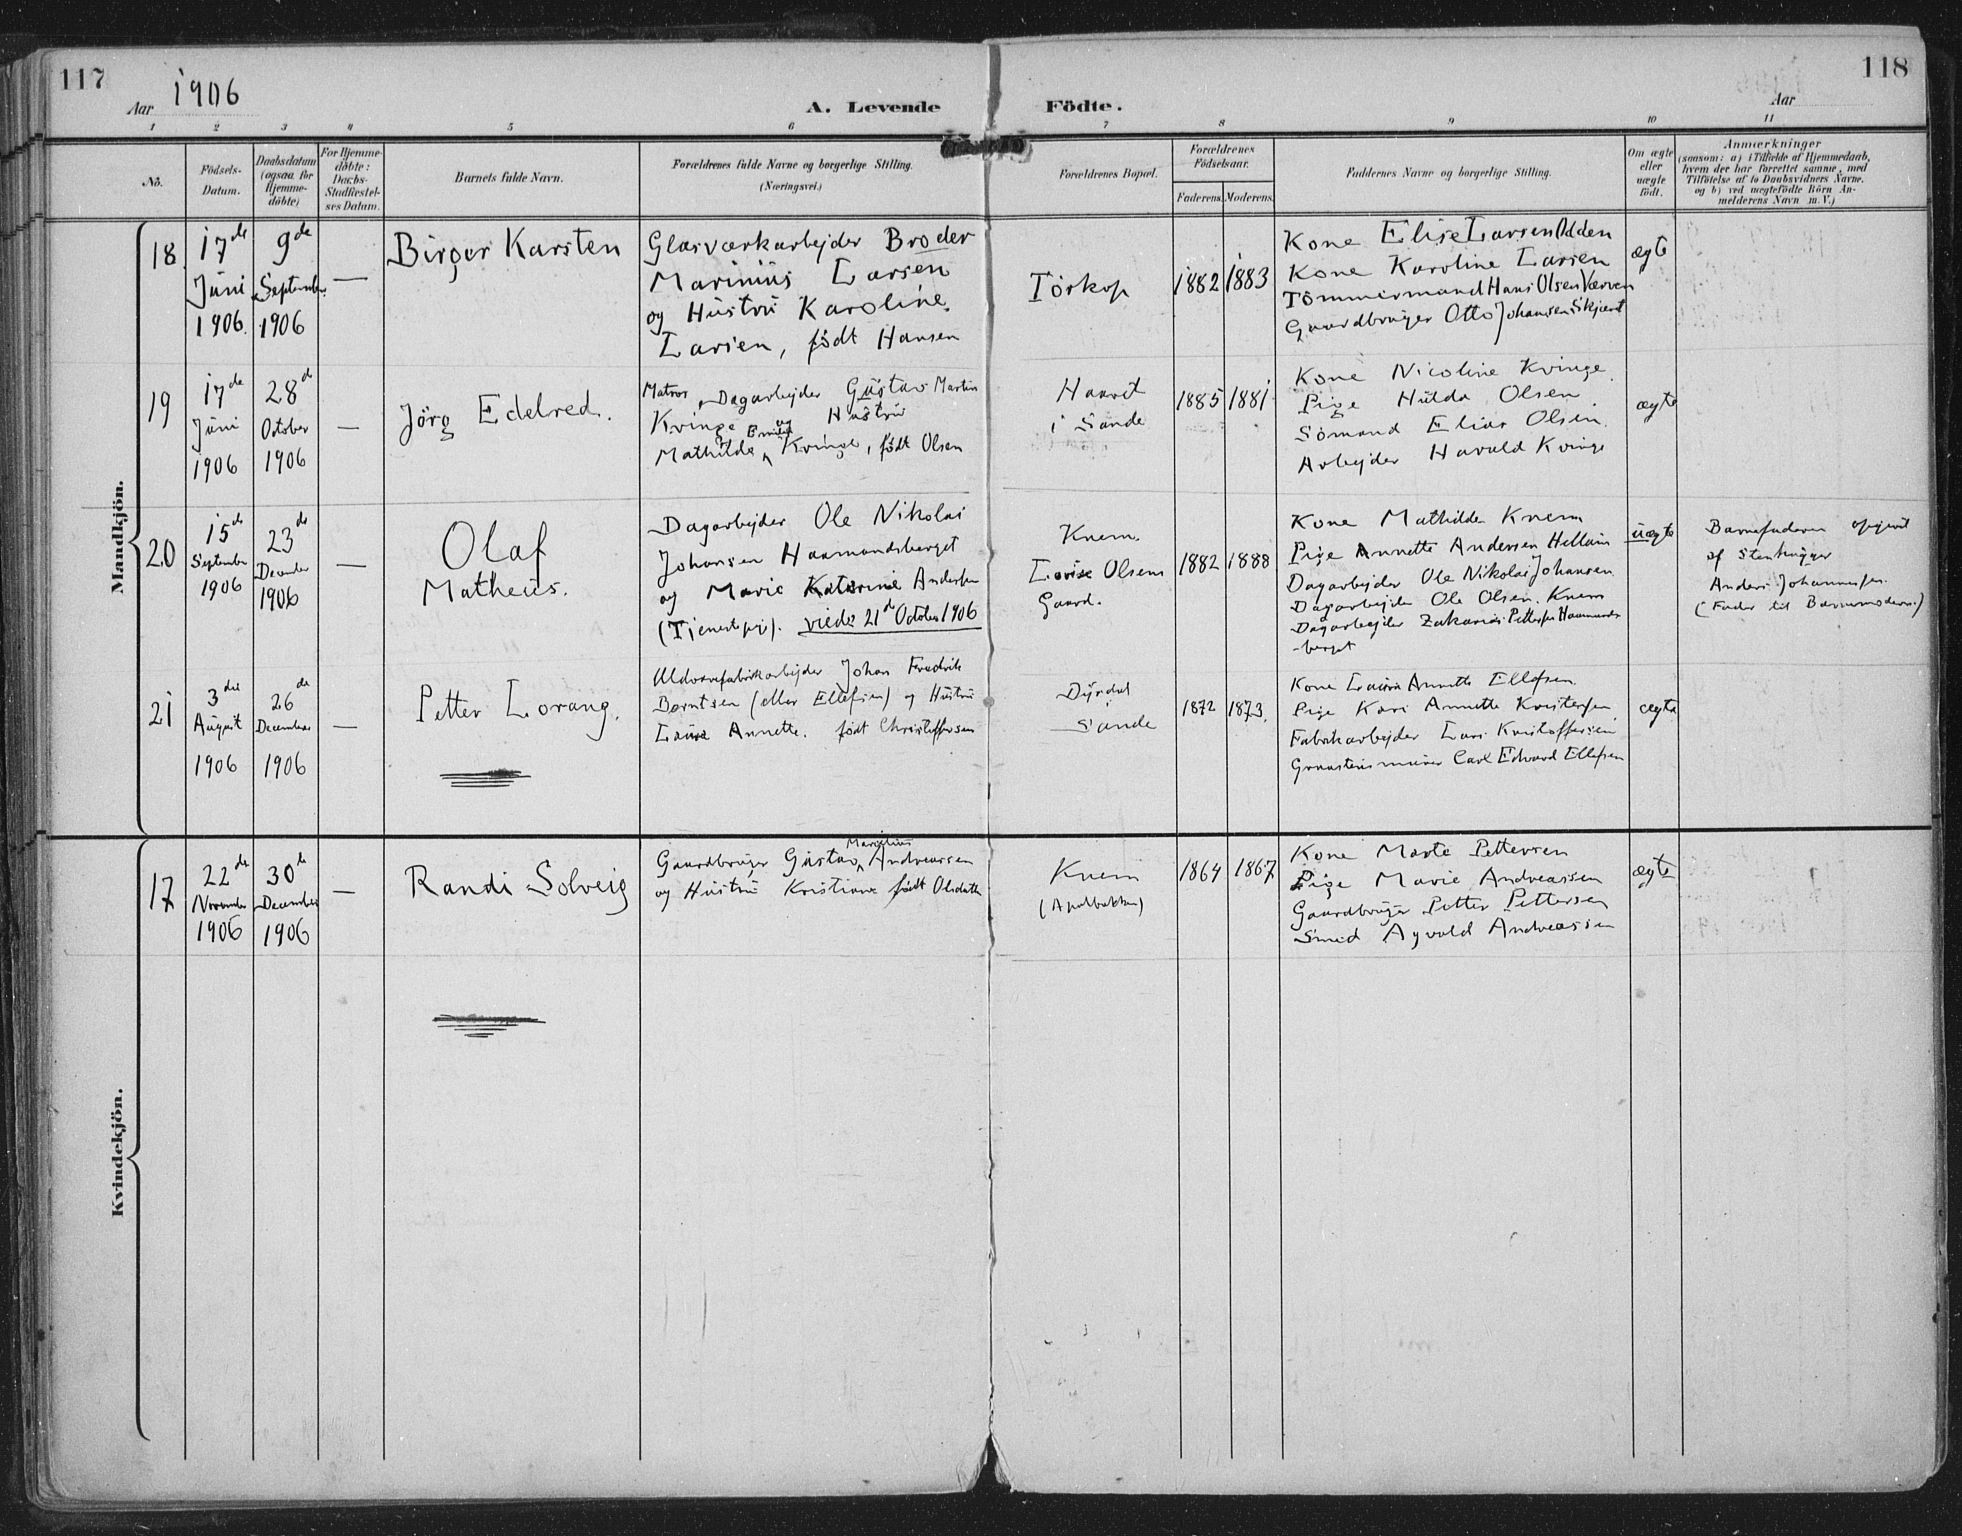 117
Aar 1906
A. Levende Födte.
Aar
118
1 2 3 4 5 6 7 8 9 10 11
No.
Födsels-Datum.
Daabsdatum (ogsaa for Hjemme-döbte)
For Hjemme-döbte: Daabs-Stadfæstel-ses Datum.
Barnets fulde Navn.
Forældrenes fulde Navne og borgerlige Stilling.
(Næringsvei.)
Forældrenes Bopæl.
Forældrenes Födselsaar.
Faderens. Moderens.
Faddernes Navne og borgerlige Stilling.
Om ægte eller uægte födt.
Anmærkninger
(saasom: a) i Tilfælde af Hjemmedaab,
hvem der har forrettet samme, med
Tilföielse af to Daabsvidners Navne,
og b) ved uægtefödte Börn An-
melderens Navn m. V.)
Mandkjön.
18.
17de Juni 1906.
9de September 1906
—
Birger Karsten
Glasværkarbejder Broder
Marinius Larsen
og Hustru Karoline
Larsen, født Hansen
Törkop
1882
1883
Kone Elise Larsen Odden
Kone Karoline Larsen
Tömmermand Hans Olsen Værven
Gaardbruger Otto Johansen Skjæret
ægte
19
17de Juni 1906
28de October 1906
—
Jörg Edelred.
Matros, Dagarbejder Gustav Martin
Kvinge og Hustru
Mathilde Emilie Kvinge, født Olsen
i Sande
1885
1881
Kone Nicoline Kvinge.
Pige Hilda Olsen.
Sömand Elias Olsen.
Arbejder Harald Kvinge
ægte
20
15de September 1906
23de December 1906
—
Olaf
Matheus.
Dagarbejder Ole Nikolai
Johansen Haamandsberget
og Marie Katarine Andersen
(Tjenestepij). viede 21de October 1906
Knem.
Lovise Olsens
Gaard.
1882
1888
Kone Mathilde Knem
Pige Annette Andersen Hellain
Dagarbejder Ole Nikolai Johansen
Dagarbejder Ole Olsen. Knem
Dagarbejder Zakarias Pettersen Haamands-
-berget
uægte
Barnefaderen opgivet
af Stenhugger
Anders Johannessen.
(Fader til Barnemoderen.)
21
3die August 1906
26de December 1906
—
Petter Lorang.
Uldvarefabrikarbejder Johan Fredrik
Berntsen (eller Ellefsen) og Hustru
Laura Annette. født Christoffersen
Dyrdal
Sande
1872
1873.
Kone Laura Annette Ellefsen
Pige Kari Annette Kristensen
Fabrikarbejder Lars Kristoffersen
Graastensmurer Carl Edvard Ellefsen
ægte
Kvindekjön.
17
22de November 1906
30te December 1906
—
Randi Solveig
Gaardbruger Gustav Marcelius Andreassen
og Hustru Kristiane født Olsdatter
Knem
(Apalbakken)
1864
1867
Kone Marte Pettersen
Pige Marie Andreassen
Gaardbruger Petter Pettersen
Smed Agvald Andreassen
ægte